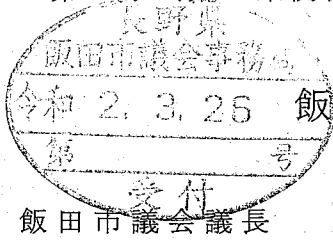 長野県
飯田市議会事務局
令和 2. 3. 26
飯
第 号
受付
飯田市議会議長